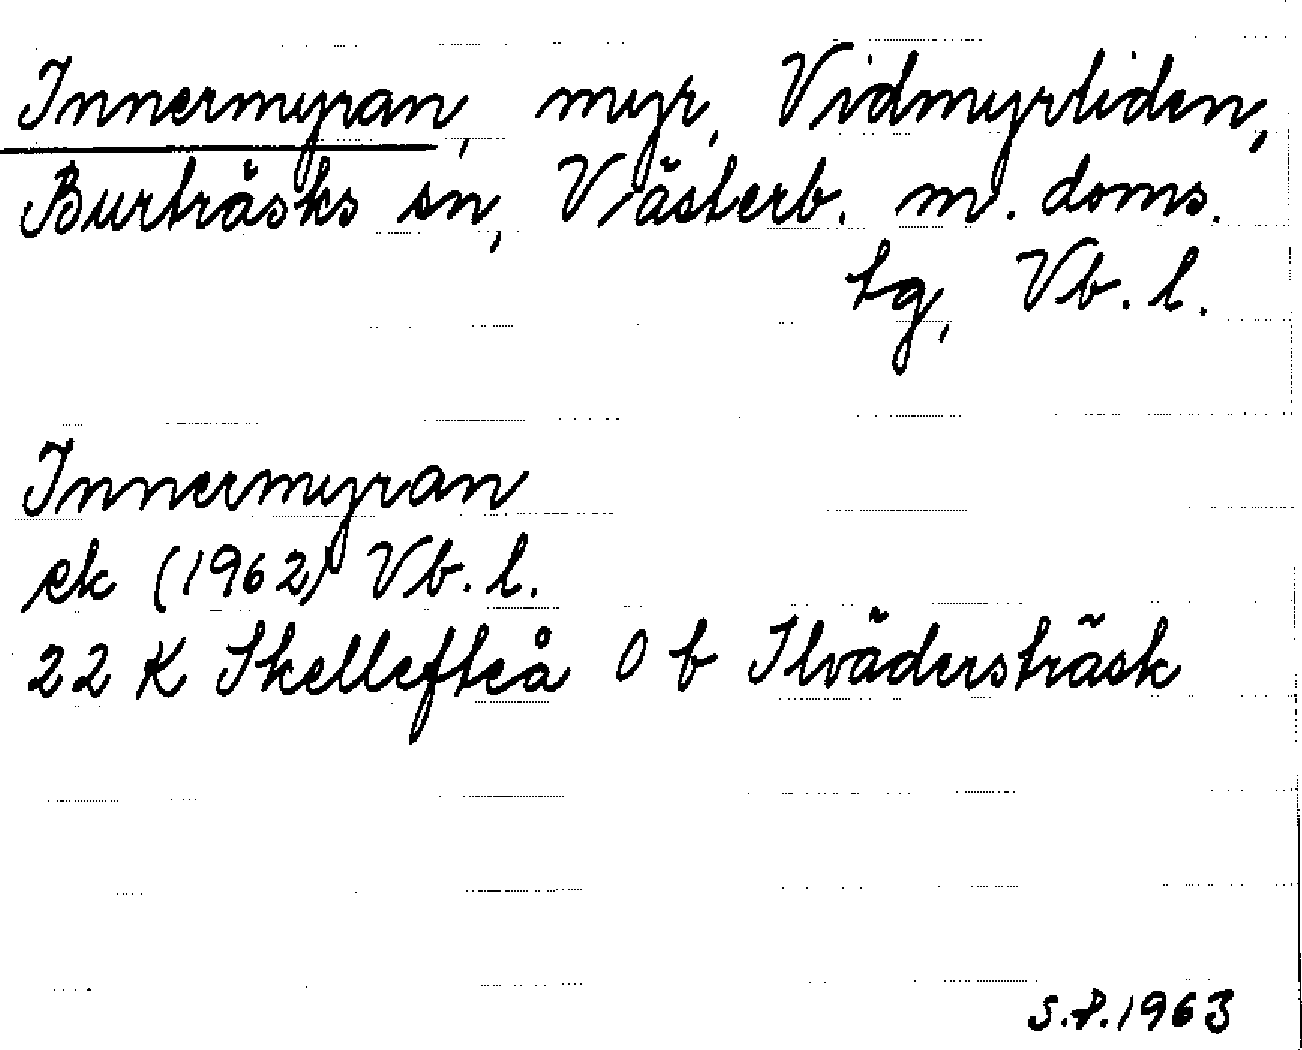 Innermyran, myr, Vidmyrliden,
Burträsks sn, Västerb. m. doms.
tg, Vb. l.
Innermyran
ek (1962) Vb. l.
22 K Skellefteå 0 b Ilvädersträsk
S.P. 1963